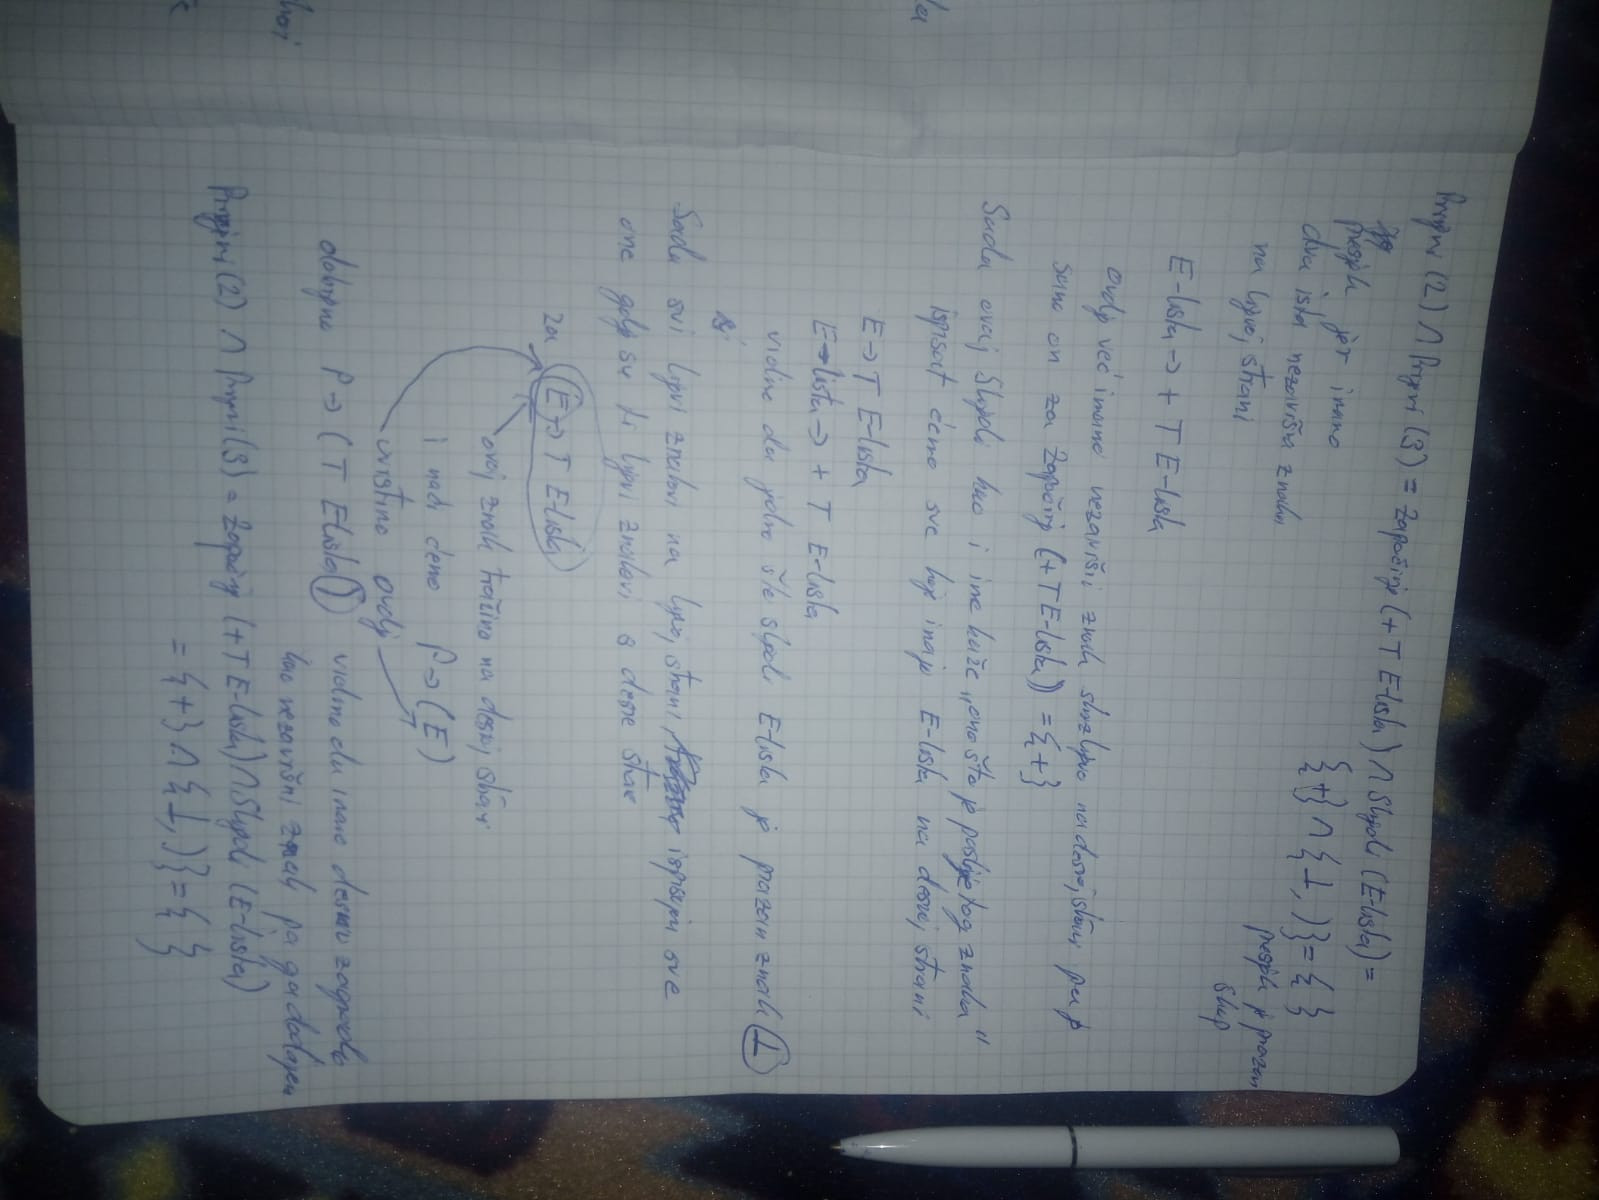 Primjeni (2) ∩ Primjeni (3) = započinje (+ T E-lista) ∩ Slijedi (E-lista) =
{+} ∩ {⊥, )} = { }
presjek je prazan
skup
presjek jer imamo
dva ista nezavršna znaka
na lijevoj strani
E-lista → + T E-lista
ovdje već imamo nezavršni znak skroz lijevo na desnoj strani pa je
samo on za započinje (+ T E-lista)) = {+}
Sada ovaj Slijedi kao i ime kaže "ono što je poslije tog znaka"
ispisat ćemo sve koje imaju E-lista na desnoj strani
E → T E-lista
E-lista → + T E-lista
vidimo da jedno što slijedi E-lista je prazan znak ⊥
Sada svi lijevi znakovi na lijevoj strani, ispisujem sve
one gdje su ti lijevi znakovi s desne strane
za E → T E-lista
ovaj znak tražimo na desnoj strani
i nađemo P → (E)
uvrstimo ovdje
dobijemo P → ( T E-lista ) vidimo da imamo desnu zagradu
kao nezavršni znak pa ga dodajem
Primjeni (2) ∩ Primjeni (3) = započinje (+ T E-lista) ∩ Slijedi (E-lista)
= {+} ∩ {⊥, )} = { }